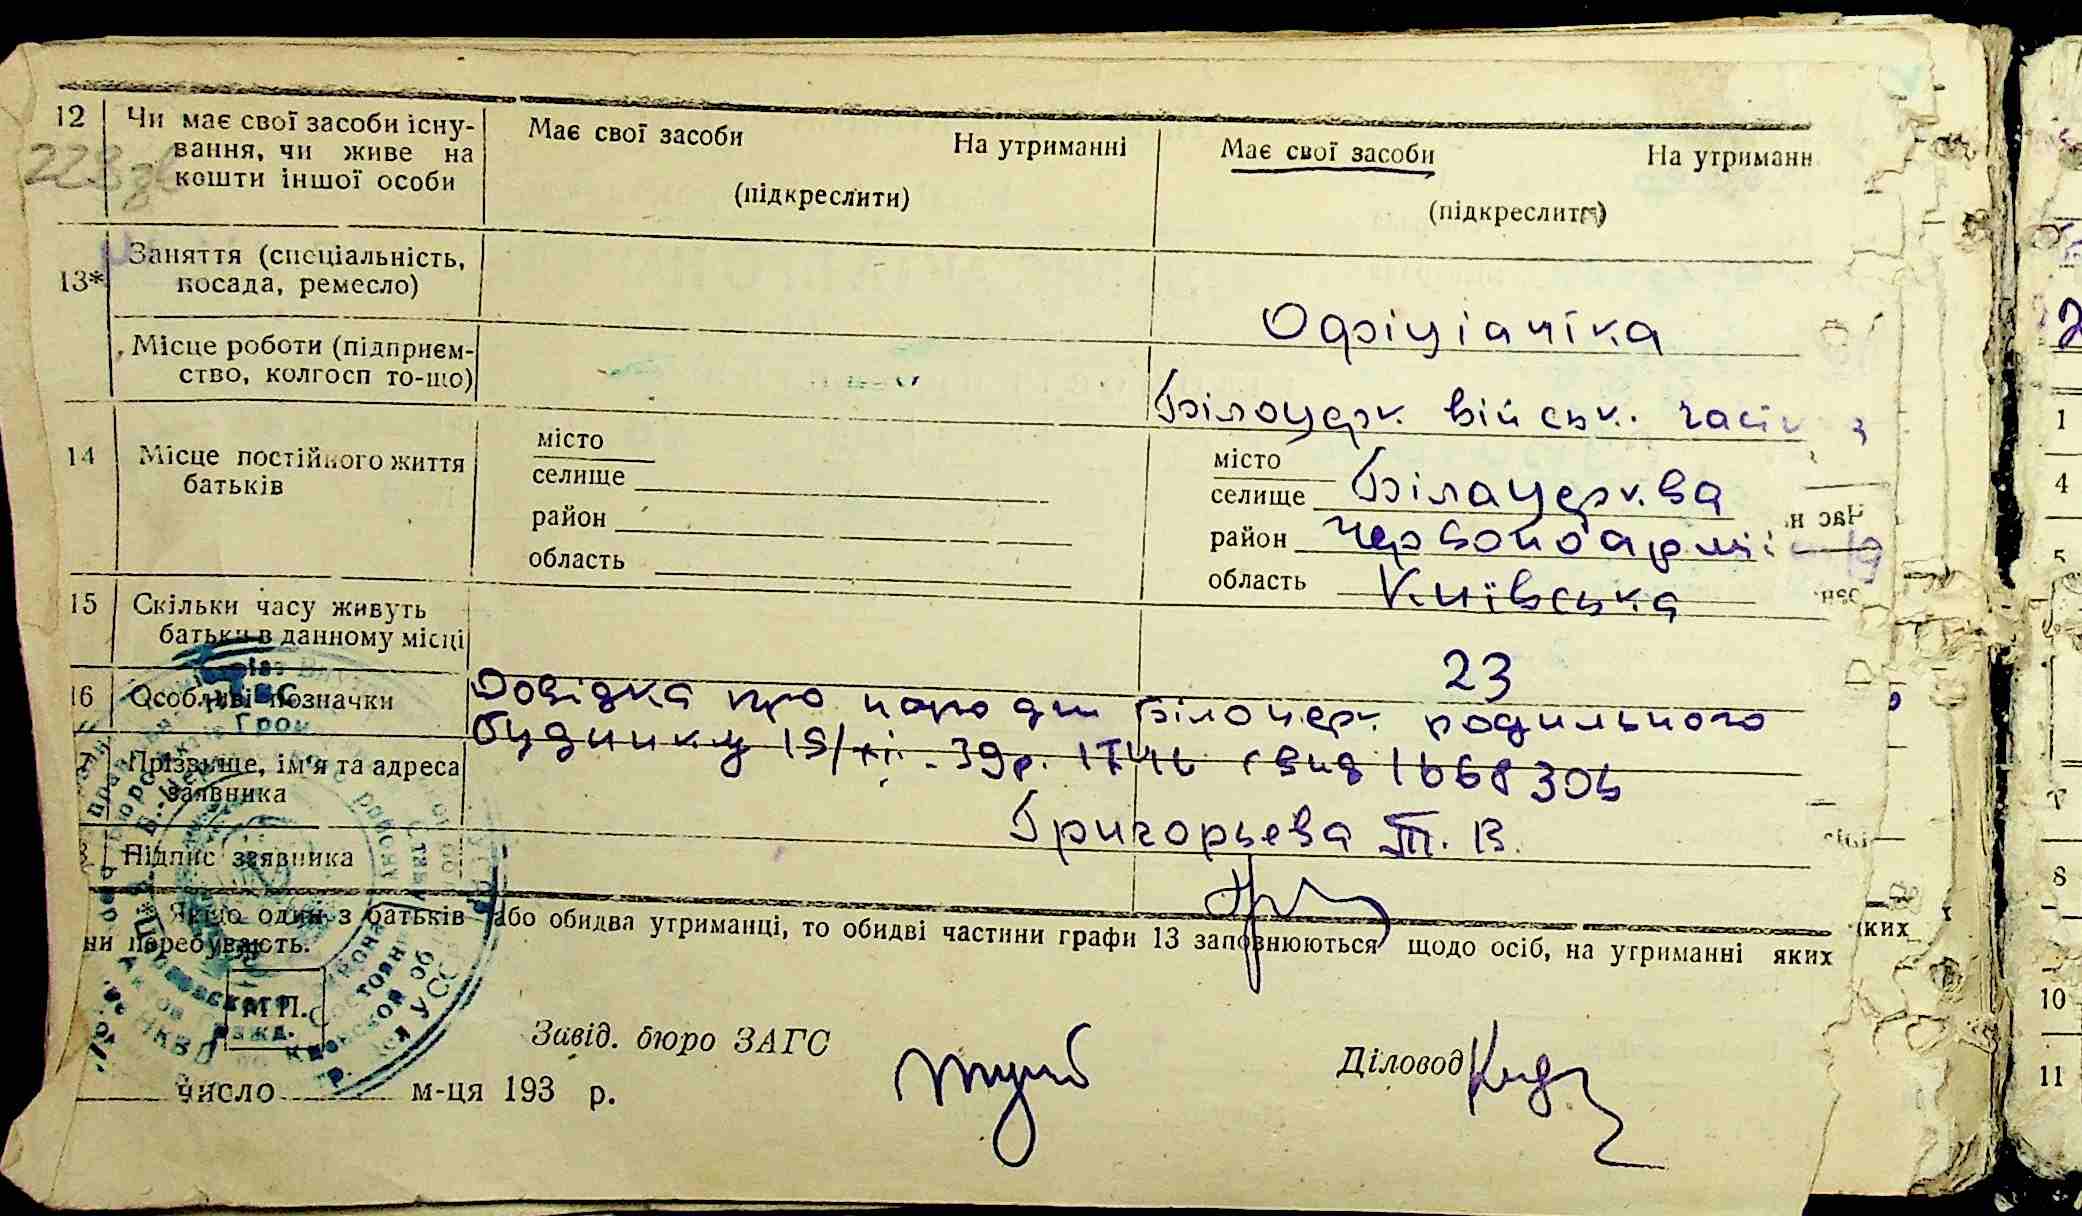 12 Чи має свої засоби існу-
вання, чи живе на
кошти іншої особи
Має свої засоби На утриманні
(підкреслити)
Має свої засоби На утриманн
(підкреслити)
223
13* Заняття (спеціальність,
посада, ремесло)
Офіціантка
Місце роботи (підприєм-
ство, колгосп то-що)
Білоцерк. військ. часть
14 Місце постійного життя
батьків
місто
селище
район
область
місто
селище Білацерква
район Червоноармі
область Київська
15 Скільки часу живуть
батьки в данному місці
23
16 Особливі позначки
Довідка про народж Білоцерк. родильного
будинку 15/XI - 39р.
Прізвище, ім'я та адреса
заявника
Григорьева Т. В.
Підпис заявника
Якщо один з батьків або обидва утриманці, то обидві частини графи 13 заповнюються щодо осіб, на утриманні яких
ни перебувають.
М.П.
Завід. бюро ЗАГС
Діловод
число м-ця 193 р.
1
4
5
8
10
11